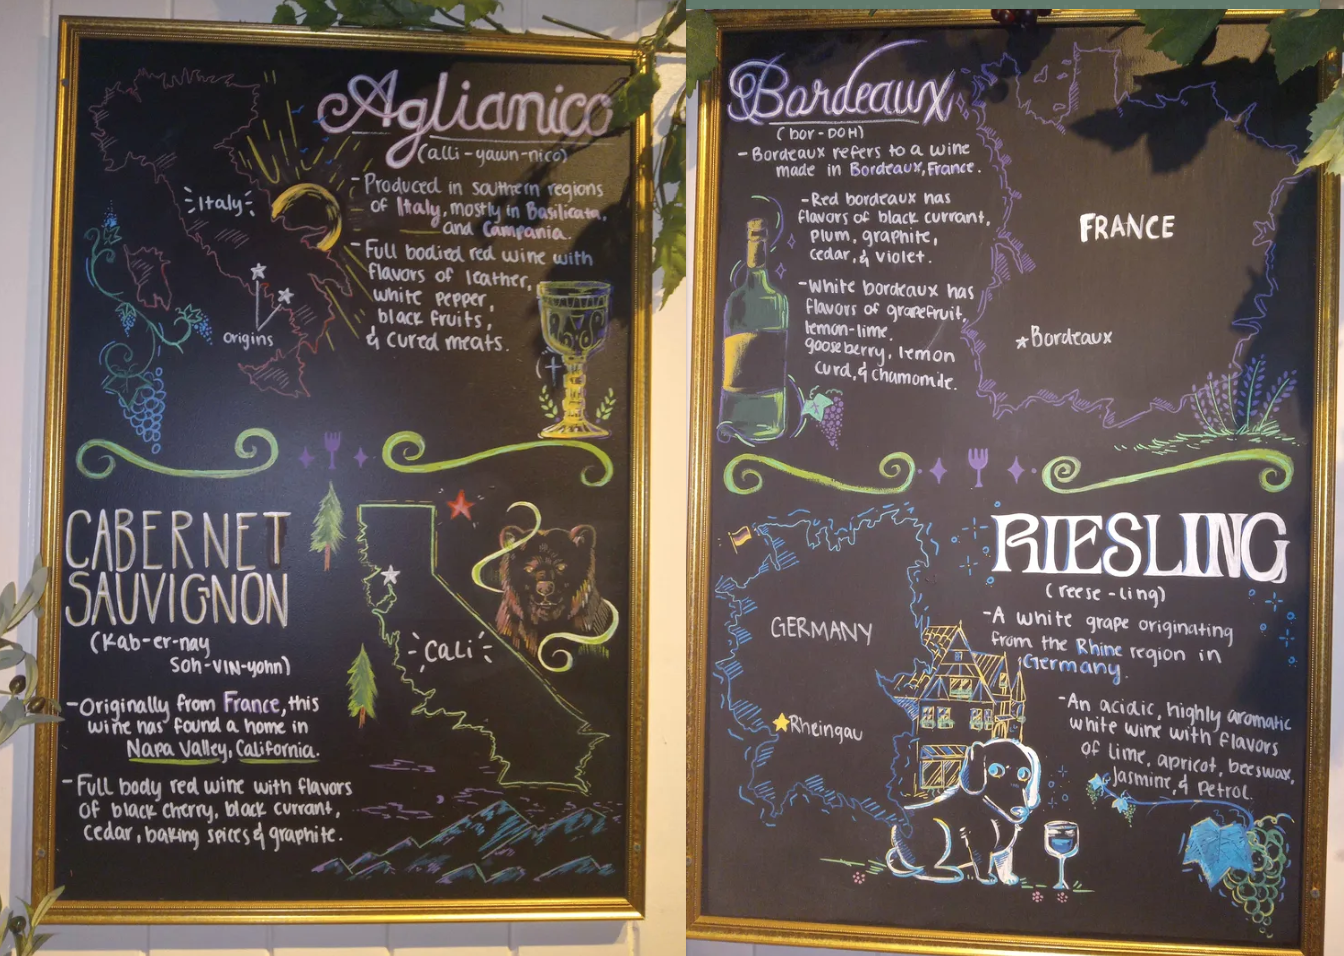 Aglianico
(alli-yawn-nico)
-Produced in southern regions
of Italy, mostly in Basilicata,
and Campania.
-Full bodied red wine with
flavors of leather,
white pepper,
black fruits,
& cured meats.
Italy
origins
CABERNET
SAUVIGNON
(Kab-er-nay
Soh-VIN-yohn)
-Originally from France, this
wine has found a home in
Napa Valley, California.
-Full body red wine with flavors
of black cherry, black currant,
cedar, baking spices & graphite.
Cali
Bordeaux
(bor-DOH)
-Bordeaux refers to a wine
made in Bordeaux, France.
-Red bordeaux has
flavors of black currant,
plum, graphite,
cedar, & violet.
-White bordeaux has
flavors of grapefruit,
lemon-lime,
gooseberry, lemon
curd, & chamomile.
FRANCE
Bordeaux
RIESLING
(reese-ling)
-A white grape originating
from the Rhine region in
Germany.
-An acidic, highly aromatic
white wine with flavors
of lime, apricot, beeswax,
Jasmine, & Petrol.
GERMANY
Rheingau